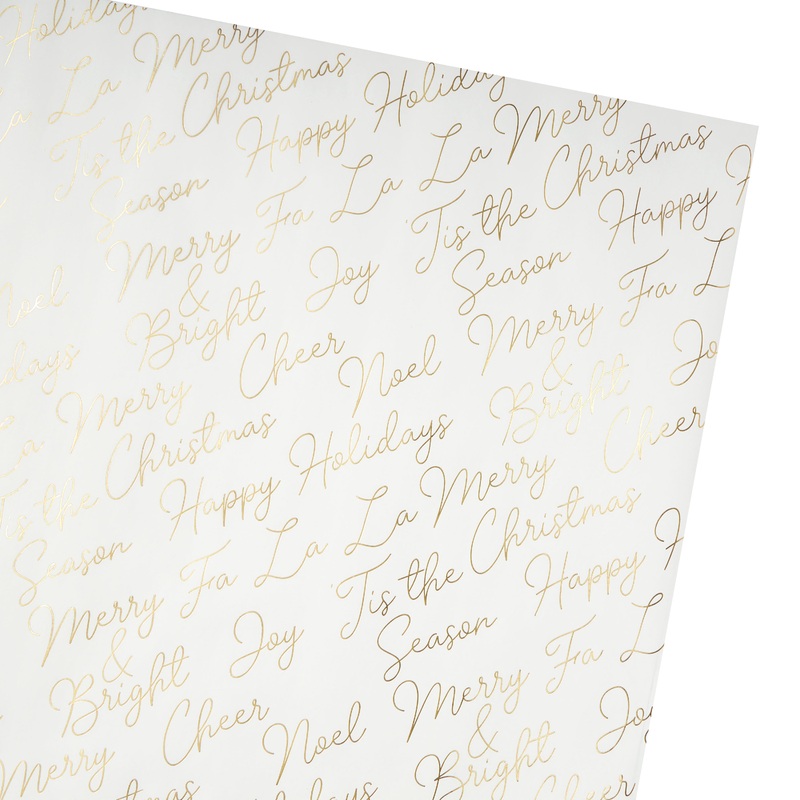 Holiday
Merry
La
Christmas
Holiday
Tis the
Happy
Merry
Season
La
La
Christmas
Fa
Tis the
Happy
Merry
Season
La
Noel
&
Joy
Merry
Fa
Bright
Cheer
Noel
&
Jo
Merry
Bright
Cheer
Christmas
Happy Holidays
Tis the
Merry
Season
La
La
Christmas
Merry
Fa
Tis the
Happy
&
Joy
Season
Fa
Bright
Merry
Cheer
Noel
&
Merry
Bright
Cheer